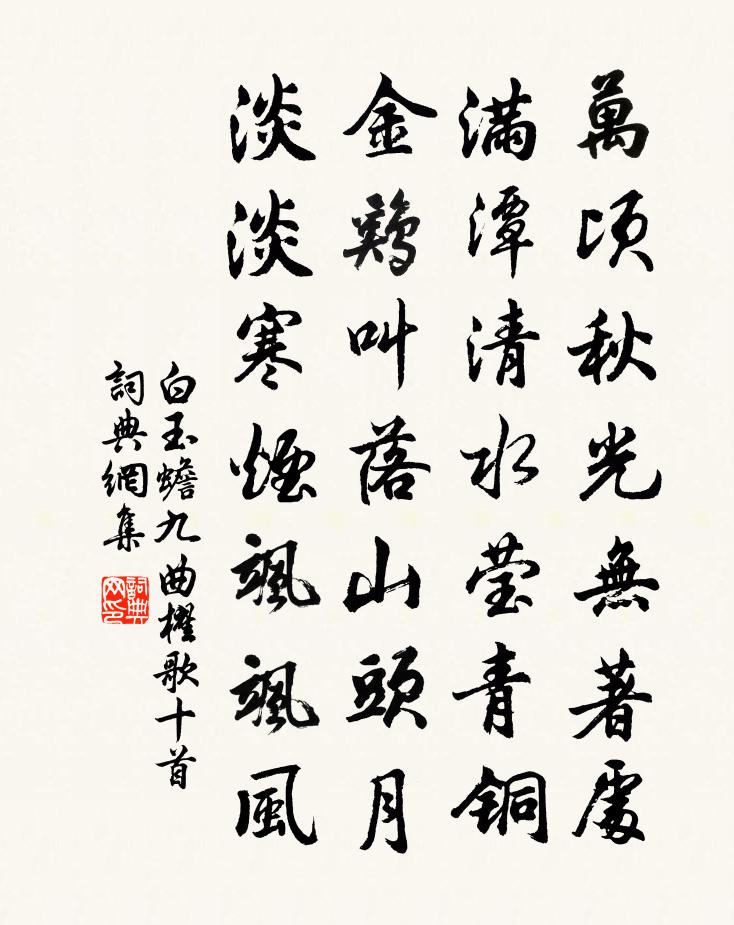 萬頃秋光無著處
滿潭清水莹青铜
金鷄叫落山頭月
淡淡寒煙颯颯風
白玉蟾九曲櫂歌十首
詞典網集
詞典网印